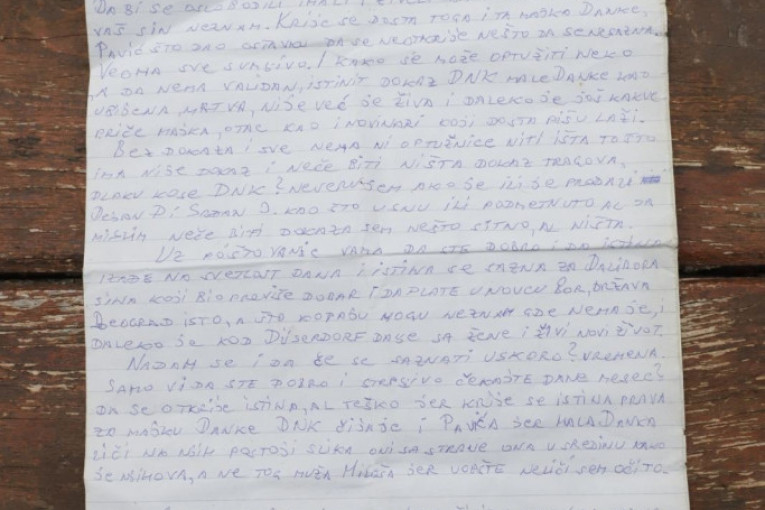 DA BI SE OSLOBODILI IMALI I
VAŠ SIN NEZNAM. KRIJE SE DOSTA TOGA I TA MAJKA DANKE,
PAVIĆ ŠTO DAO OSTAVKU DA SE NEOTKRIJE NEŠTO DA SE NESAZNA.
VEOMA SVE SUMLJIVO! KAKO SE MOŽE OPTUŽITI NEKO
A DA NEMA VALIDAN, ISTINIT DOKAZ DNK MALE DANKE KAO
UBIJENA, MRTVA, NIJE VEĆ JE ŽIVA I DALEKO JE JOŠ KAKVE
PRIČE MAJKA, OTAC KAO I NOVINARI KOJI DOSTA PIŠU LAŽI.
BEZ DOKAZA I SVE NEMA NI OPTUŽNICE NITI IŠTA TO ŠTO
IMA NIJE DOKAZ I NEĆE BITI NIŠTA DOKAZ TRAGOVA,
DLAKU KOSE DNK? NEVERUJEM AKO JE ILI JE PRODALI
DEJAN DJ SRDJAN J. KAO ŠTO USNU ILI PODMETNUTO AL JA
MISLIM NEĆE BITI DOKAZA SEM NEŠTO SITNO, AL NIŠTA.
UZ POŠTOVANJE VAMA DA STE DOBRO I DA ISTINA
IZAĐE NA SVETLOST DANA I ISTINA SE SAZNA ZA DALIBORA
SINA KOJI BIO PREVIŠE DOBAR I DA PLATE U NOVCU BOR, DRŽAVA
BEOGRAD ISTO, A ŠTO KOPAJU MOGU NEZNAM GDE NEMA JE, I
DALEKO JE KOD DIJSERDORF DALJE SA ŽENE I ŽIVI NOVI ŽIVOT.
NADAM SE I DA ĆE SE SAZNATI USKORO? VREMENA.
SAMO VI DA STE DOBRO I STRPLJIVO ČEKAJTE DANE MESEC?
DA SE OTKRIJE ISTINA, AL TEŠKO JER KRIJE SE ISTINA PRAVA
ZA MAJKU DANKE DNK I PAVIĆA JER MALA DANKA
LIČI NA NJIH POSTOJI SLIKA ONI SA STRANE ONA U SREDINU KAKO
JE NJIHOVA, A NE TOG MUŽA MILOŠA JER UOPŠTE NELIČI SEM OČI TO.